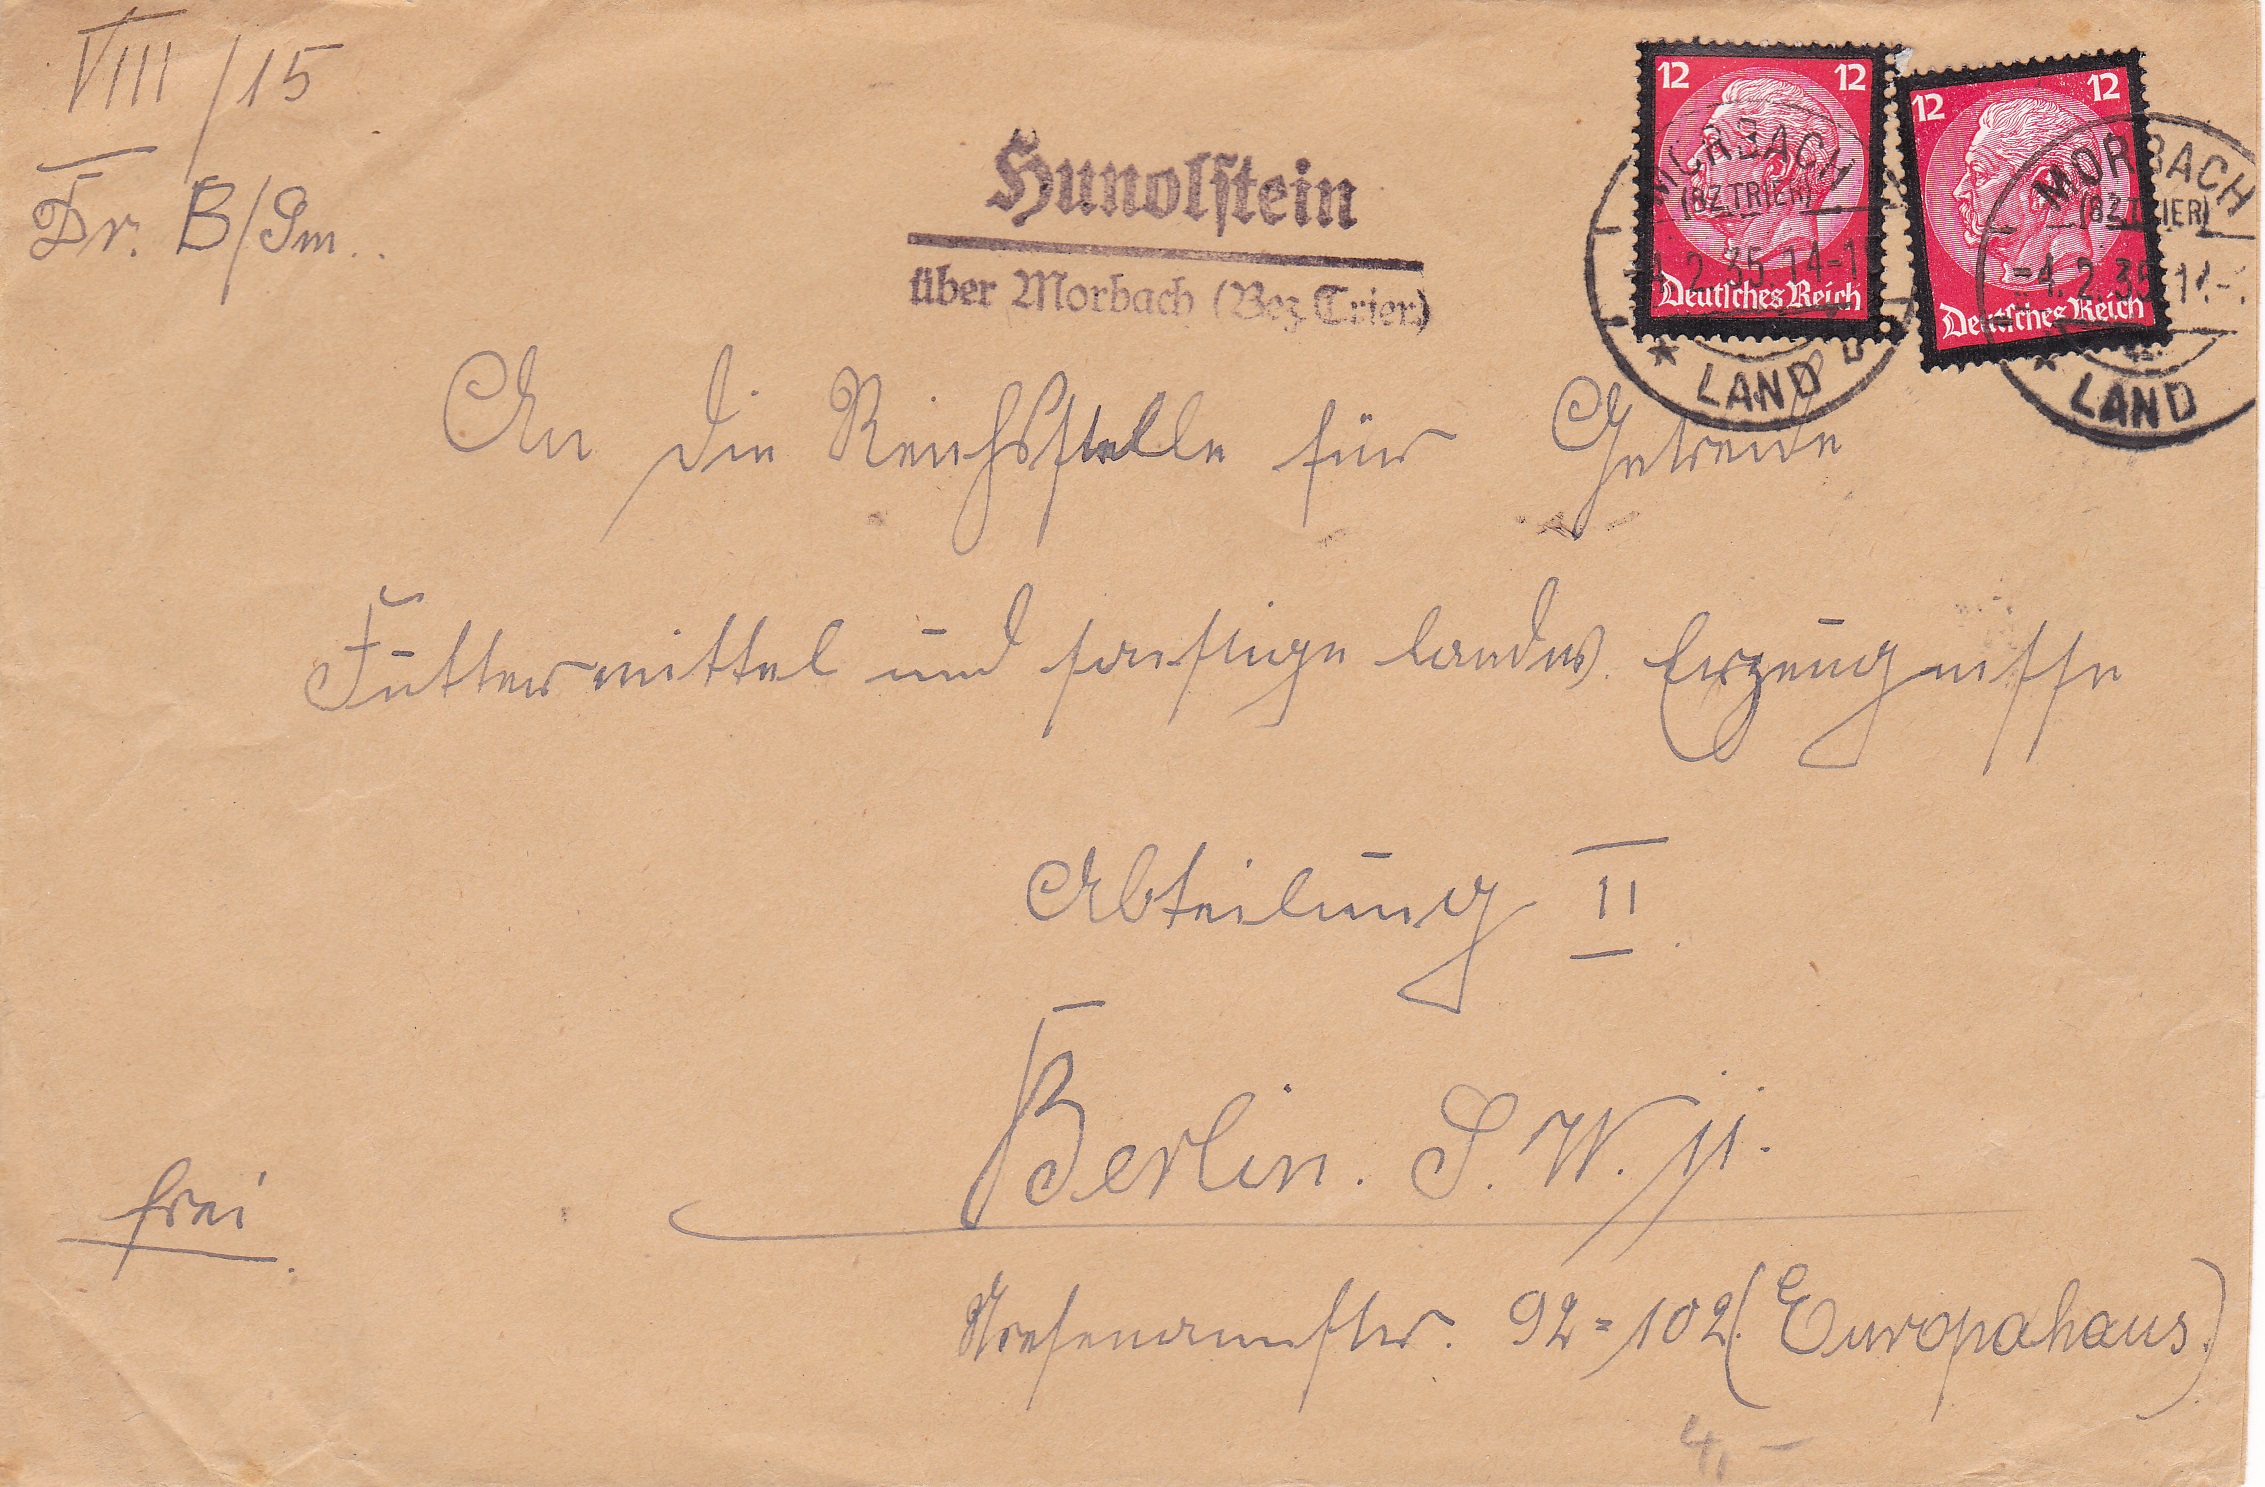 VIII/15
Dr. B/Sm.
Hunolstein
über Morbach (Bez. Trier)
12 12
Deutsches Reich
12 12
Deutsches Reich
MORBACH
(BZ.TRIER)
-4.2.35.14-1
LAND
MORBACH
(BZ.TRIER)
-4.2.35.1
LAND
An die Reichsstelle für Getreide
Futtermittel und sonstige landw. Erzeugnisse
Abteilung II
Berlin. S.W. 11.
frei
92=102 (Europahaus.)
4,-